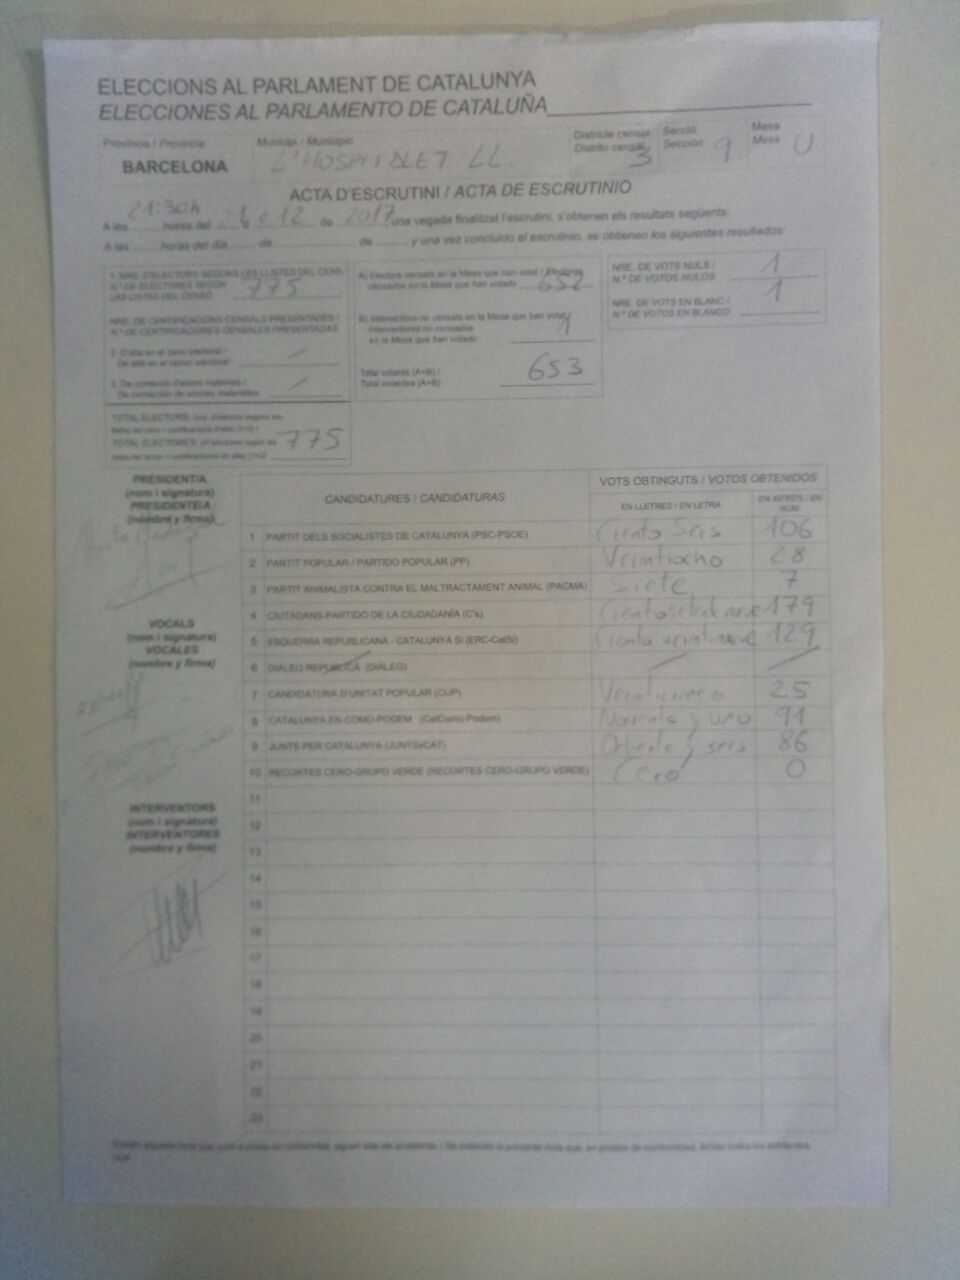 ELECCIONS AL PARLAMENT DE CATALUNYA
ELECCIONES AL PARLAMENTO DE CATALUÑA
Provincia / Provincia
BARCELONA
Municipi / Municipio
L'HOSPITALET LL.
Districte censal
Distrito censal 3
Secció
Sección 9
Mesa
Mesa U
ACTA D'ESCRUTINI / ACTA DE ESCRUTINIO
A les 21:30h hores del de 12 de 2017 una vegada finalitzat l'escrutini, s'obtenen els resultats següents:
A las horas del día de de y una vez concluido el escrutinio, se obtienen los siguientes resultados:
1. NRE. D'ELECTORS SEGONS LES LLISTES DEL CENS /
N.º DE ELECTORES SEGÚN
LAS LISTAS DEL CENSO 775
NRE. DE CERTIFICACIONS CENSALS PRESENTADES /
N.º DE CERTIFICACIONES CENSALES PRESENTADAS
2. D'alta en el cens electoral /
De alta en el censo electoral /
3. De correcció d'errors materials /
De corrección de errores materiales /
TOTAL ELECTORS
TOTAL ELECTORES 775
A) Electors censats en la Mesa que han votat / Electores
censados en la Mesa que han votado 652
B) Interventors no censats en la Mesa que han votat
Interventores no censados
en la Mesa que han votado 1
Total votants (A+B) /
Total votantes (A+B) 653
NRE. DE VOTS NULS /
N.º DE VOTOS NULOS 1
NRE. DE VOTS EN BLANC /
N.º DE VOTOS EN BLANCO 1
PRESIDENT/A
(nom i signatura)
PRESIDENTE/A
(nombre y firma)
VOCALS
(nom i signatura)
VOCALES
(nombre y firma)
INTERVENTORS
(nom i signatura)
INTERVENTORES
(nombre y firma)
CANDIDATURES / CANDIDATURAS
VOTS OBTINGUTS / VOTOS OBTENIDOS
EN LLETRES / EN LETRA
EN XIFRES / EN NÚM
1 PARTIT DELS SOCIALISTES DE CATALUNYA (PSC-PSOE) Ciento Seis 106
2 PARTIT POPULAR / PARTIDO POPULAR (PP) Veintiocho 28
3 PARTIT ANIMALISTA CONTRA EL MALTRACTAMENT ANIMAL (PACMA) Siete 7
4 CIUTADANS-PARTIDO DE LA CIUDADANÍA (C's) 179
5 ESQUERRA REPUBLICANA - CATALUNYA SÍ (ERC-CatSí) Ciento veintinueve 129
6 DIÁLEG REPÚBLICA (DIÁLEG) / /
7 CANDIDATURA D'UNITAT POPULAR (CUP) Veinticinco 25
8 CATALUNYA EN COMÚ-PODEM (CatComú-Podem) Noventa y uno 91
9 JUNTS PER CATALUNYA (JUNTSxCAT) Ochenta y seis 86
10 RECORTES CERO-GRUPO VERDE (RECORTES CERO-GRUPO VERDE) Cero 0
11
12
13
14
15
16
17
18
19
20
21
22
23